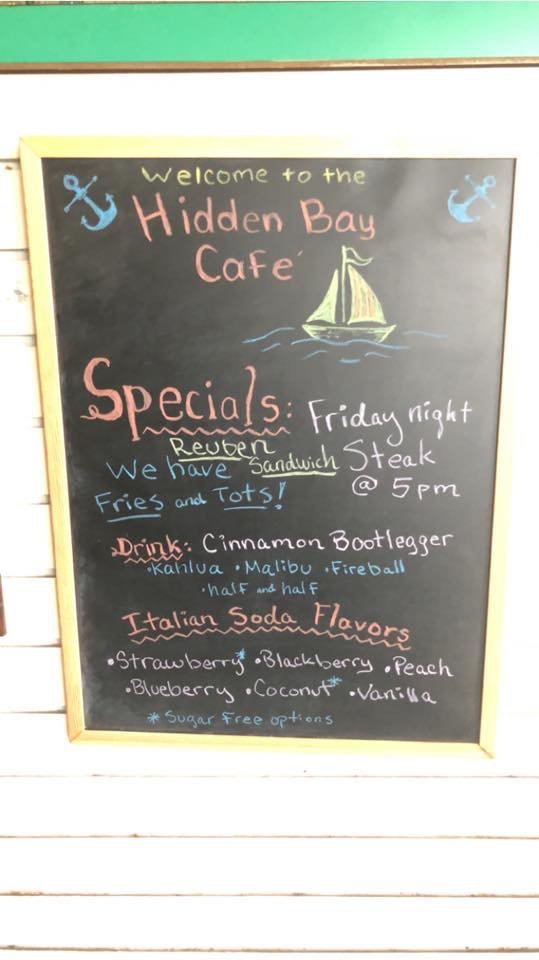 Welcome to the
Hidden Bay
Café
Specials: Friday night
Reuben
Sandwich
Steak
@ 5pm
We have
Fries and Tots!
Drink: Cinnamon Bootlegger
•Kahlua •Malibu •Fireball
•half and half
Italian Soda Flavors
•Strawberry* •Blackberry •Peach
•Blueberry •Coconut* •Vanilla
*Sugar Free options